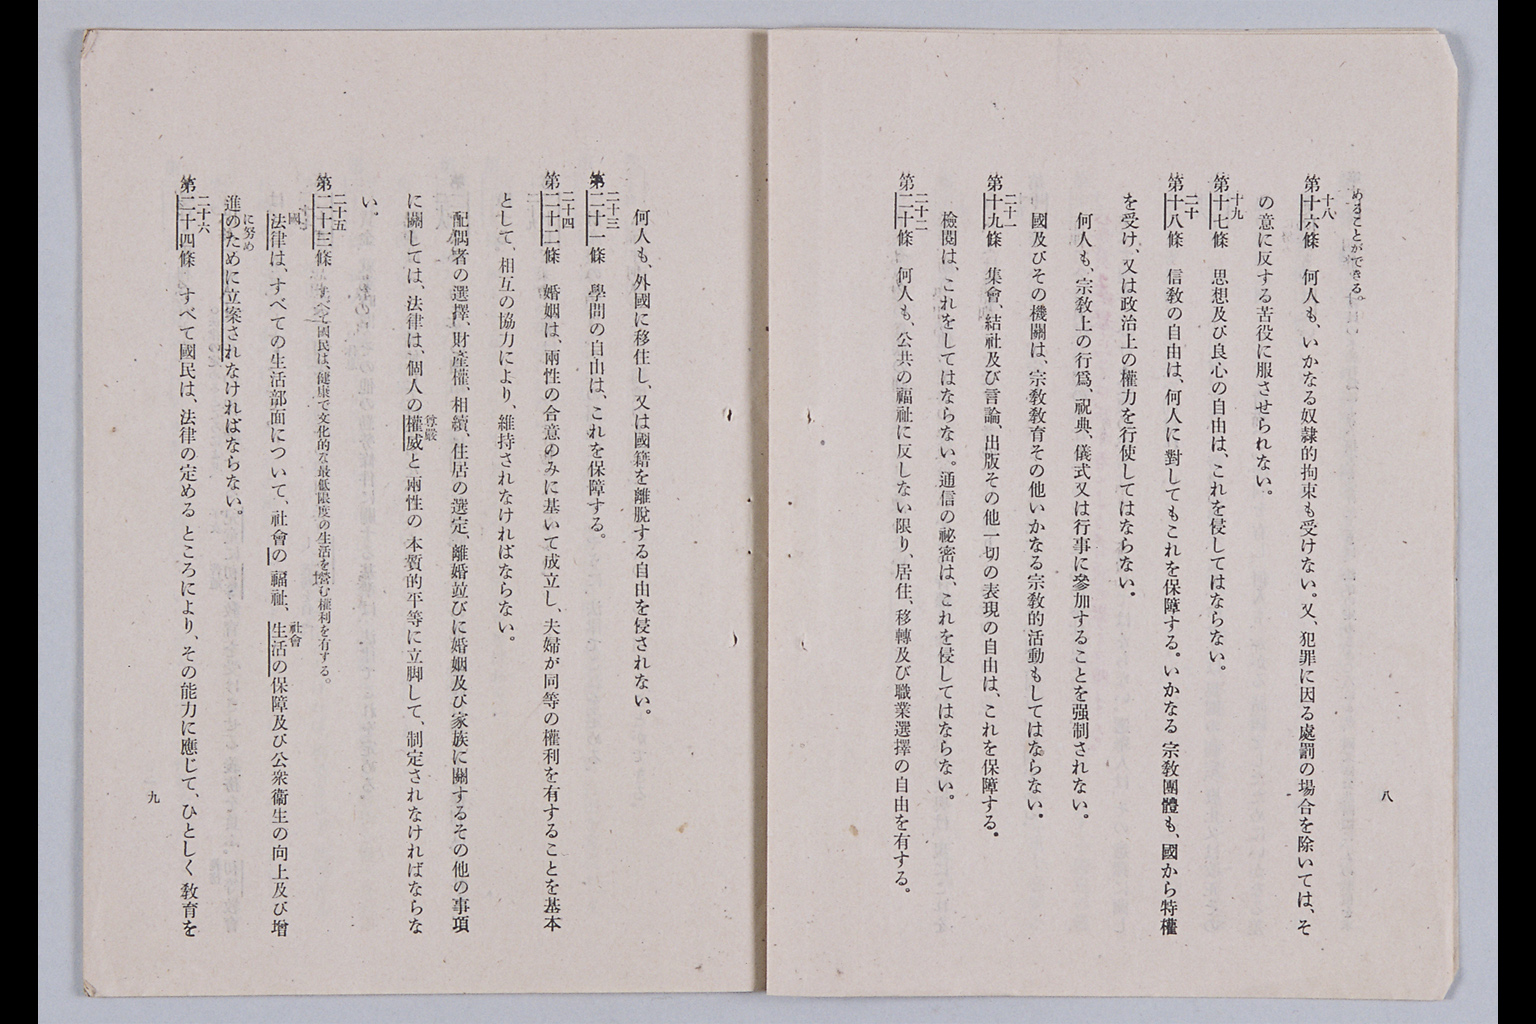 めることができる。
十八
第十六條　何人も、いかなる奴隷的拘束も受けない。又、犯罪に因る處罰の場合を除いては、そ
の意に反する苦役に服させられない。
十九
第十七條　思想及び良心の自由は、これを侵してはならない。
二十
第十八條　信敎の自由は、何人に對してもこれを保障する。いかなる宗敎團體も、國から特權
を受け、又は政治上の權力を行使してはならない。
何人も、宗敎上の行爲、祝典、儀式又は行事に參加することを强制されない。
國及びその機關は、宗敎敎育その他いかなる宗敎的活動もしてはならない。
二十一
第十九條　集會、結社及び言論、出版その他一切の表現の自由は、これを保障する。
檢閱は、これをしてはならない。通信の祕密は、これを侵してはならない。
二十二
第二十條　何人も、公共の福祉に反しない限り、居住、移轉及び職業選擇の自由を有する。
八
何人も、外國に移住し、又は國籍を離脫する自由を侵されない。
二十三
第二十一條　學問の自由は、これを保障する。
二十四
第二十二條　婚姻は、兩性の合意のみに基いて成立し、夫婦が同等の權利を有することを基本
として、相互の協力により、維持されなければならない。
配偶者の選擇、財產權、相續、住居の選定、離婚竝びに婚姻及び家族に關するその他の事項
尊嚴
に關しては、法律は、個人の權威と兩性の本質的平等に立脚して、制定されなければならな
い。
二十五
第二十三條　すべて國民は、健康で文化的な最低限度の生活を營む權利を有する。
國
社會
法律は、すべての生活部面について、社會の福祉、生活の保障及び公衆衞生の向上及び增
に努め
進のために立案されなければならない。
二十六
第二十四條　すべて國民は、法律の定めるところにより、その能力に應じて、ひとしく敎育を
九